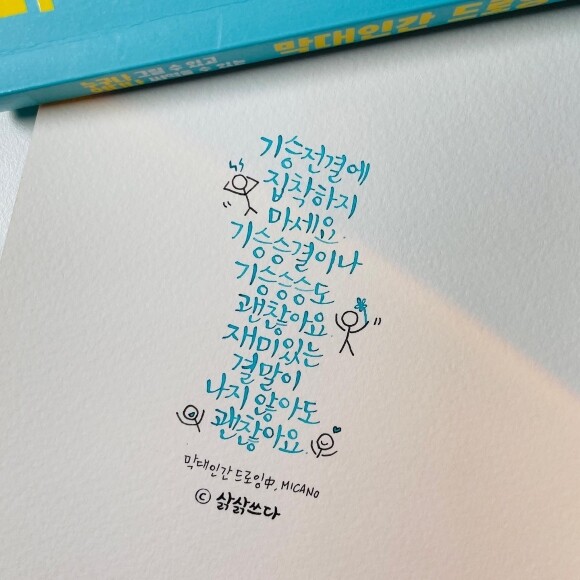 막대인간 드로잉
그릴 수 있고
수 있는
기승전결에
집착하지
마세요.
기승승결이나
기승승승도
괜찮아요
재미있는
결말이
나지 않아도
괜찮아요.
막대인간 드로잉中, MICANO
© 삵삵쓰다